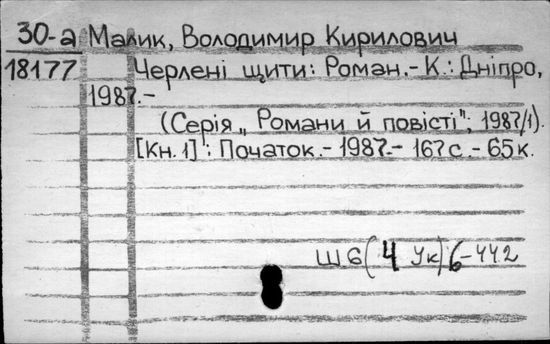 30-а Малик, Володимир Кирилович
18177 Черлені щити: Роман.- К.: Дніпро,
1987.-
(Серія „ Романи й повісті", 1987/1).
[Кн. 1]": Початок.- 1987.- 167 с. - 65 к.
Ш6(4 Ук)6-442